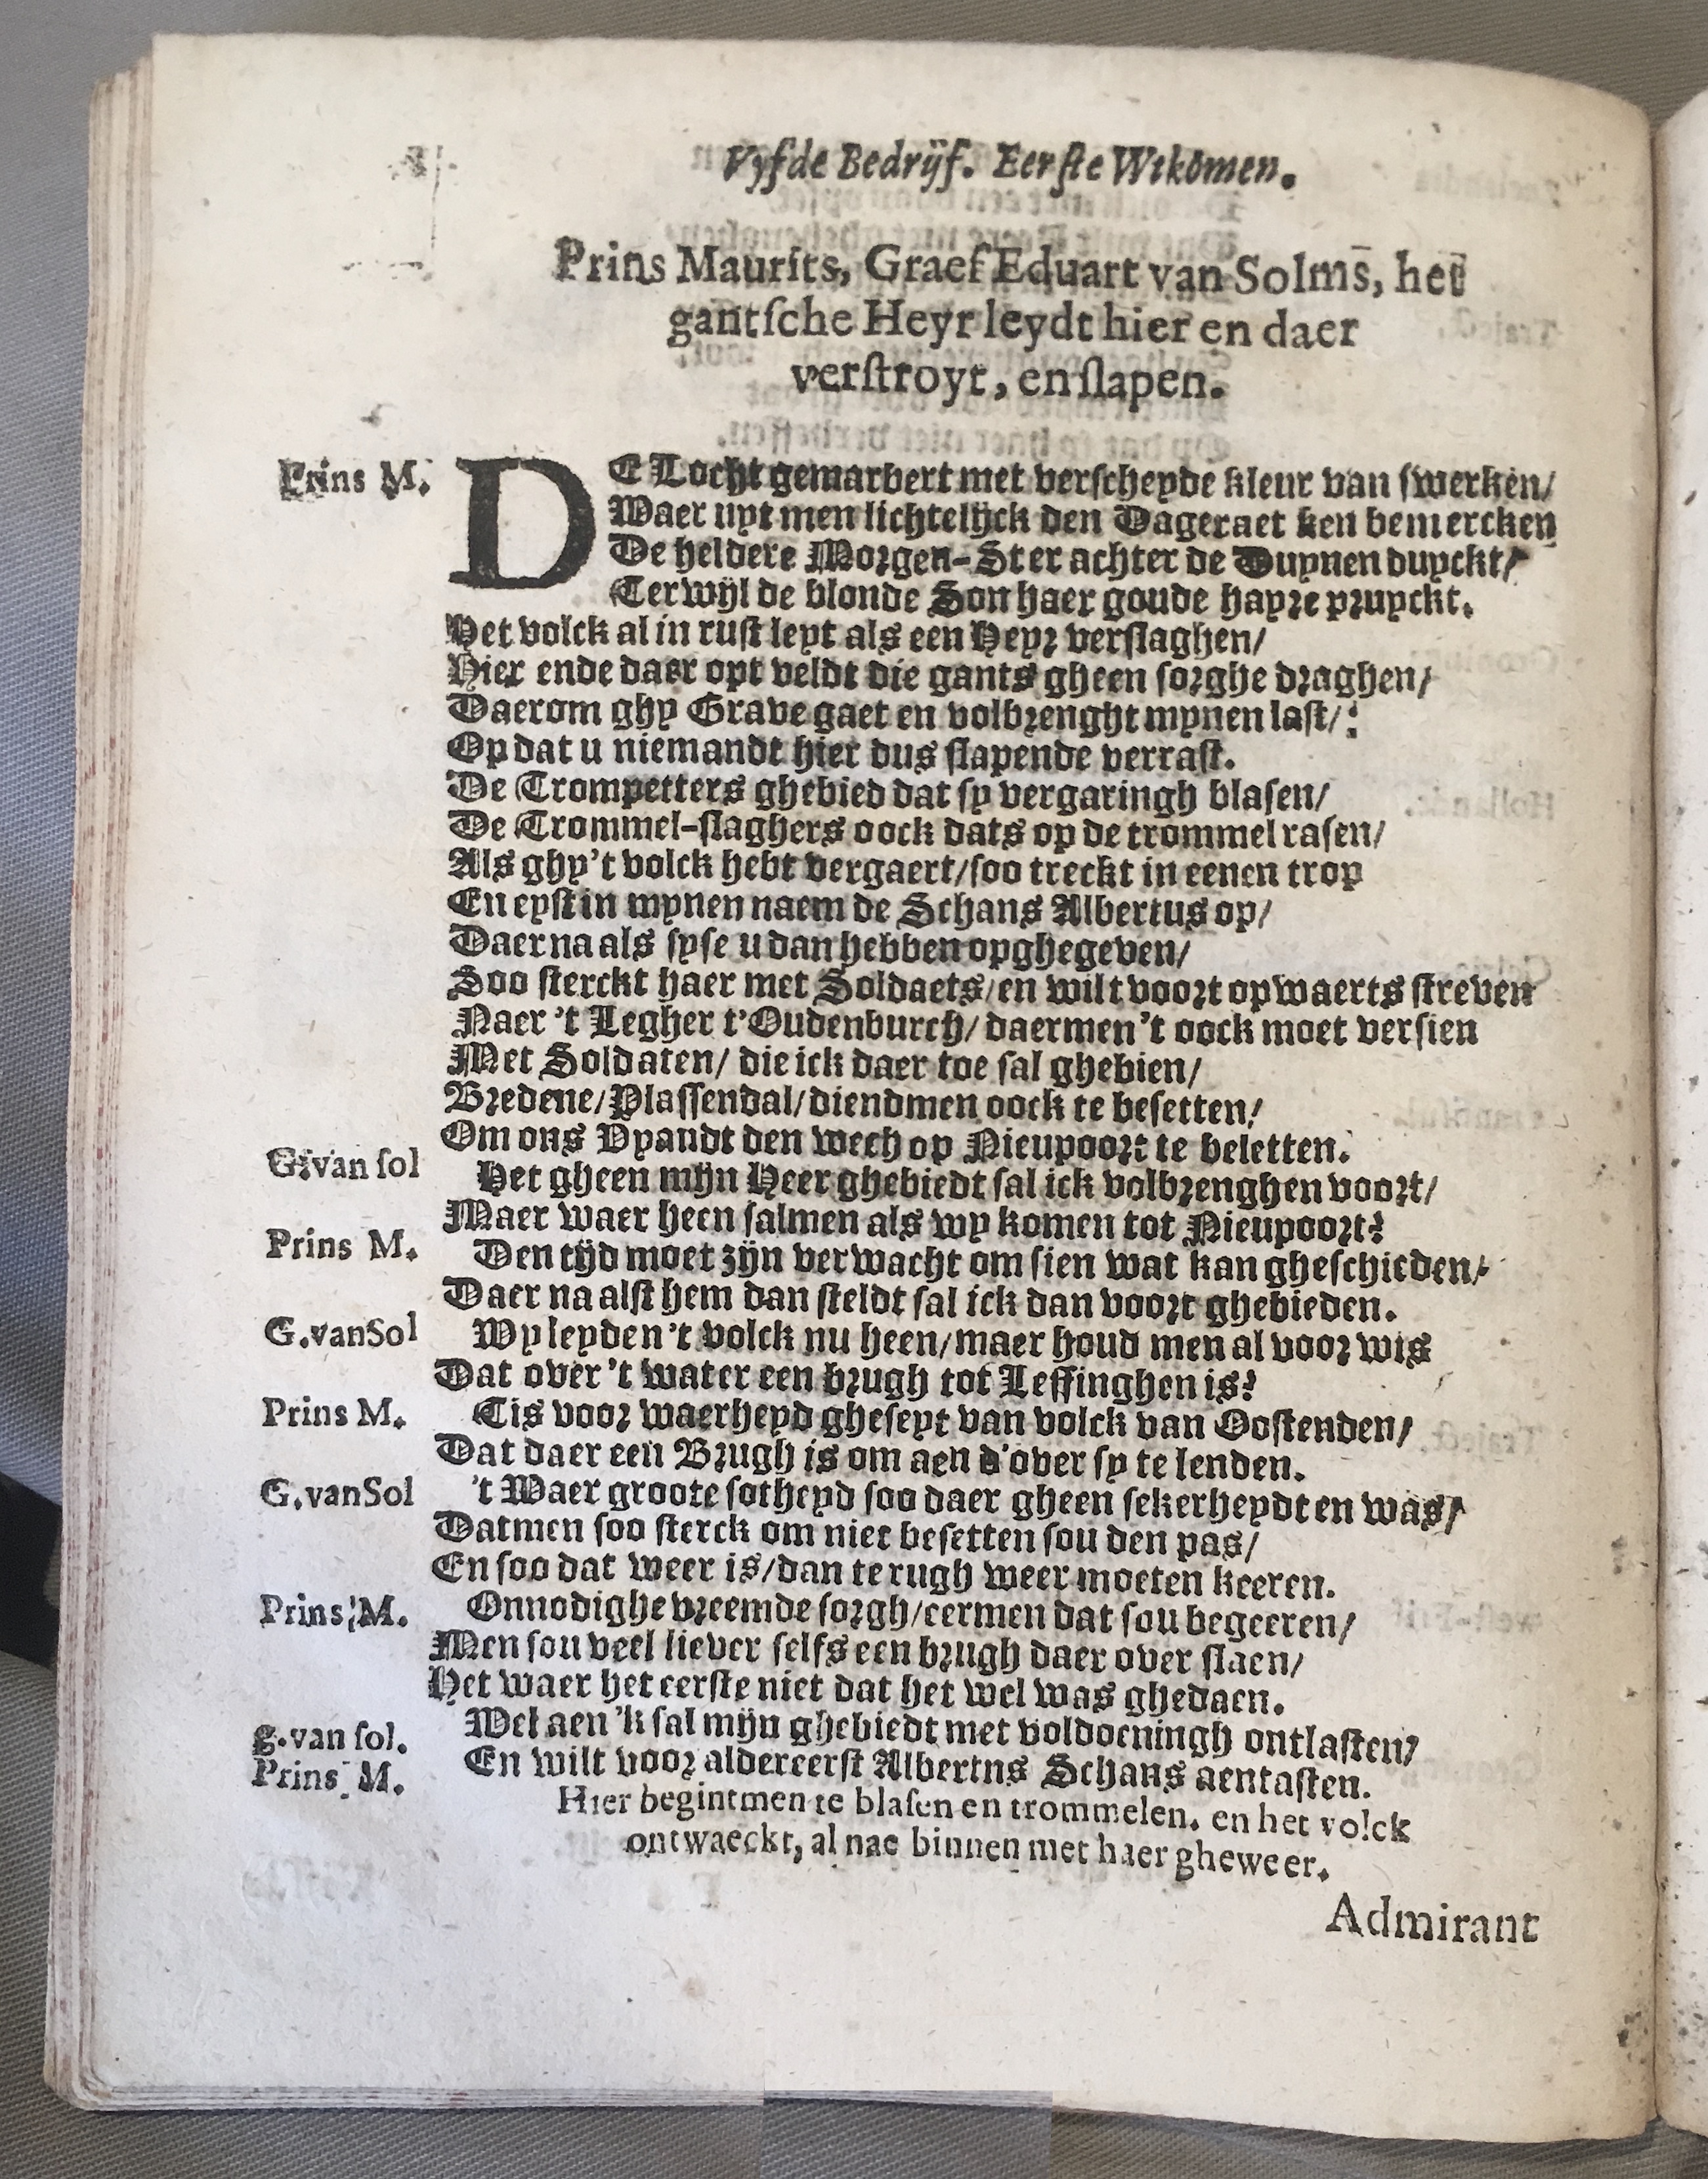 Vyfde Bedrijf. Eerste Wtkomen.
Prins Maurits, Graef Eduart van Solms̄, het
gantsche Heyr leydt hier en daer
verstroyt, en slapen.
Prins M. DE Locht gemarbert met verscheyde kleur van swerken/
Waer uyt men lichtelijck den Dageraet ken bemercken
De heldere Morgen-Ster achter de Duynen duyckt/
Terwijl de blonde Son haer goude hayre pruyckt.
Het volck al in rust leyt als een Heyr verslaghen/
Hier ende daer opt veldt die gants gheen sorghe draghen/
Daerom ghy Grave gaet en volbrenght mynen last/:
Op dat u niemandt hier dus slapende verrast.
De Trompetters ghebied dat sy vergaringh blasen/
De Trommel-slaghers oock dats op de trommel rasen/
Als ghy't volck hebt vergaert/soo treckt in eenen trop
En eyst in mynen naem de Schans Albertus op/
Daer na als syse u dan hebben opghegeven/
Soo sterckt haer met Soldaets/en wilt voort opwaerts streven
Naer 't Legher t'Oudenburch/daermen't oock moet versien
Met Soldaten/ die ick daer toe sal ghebien/
Bredene/Plassendal/diendmen oock te besetten/
Om ons Vyandt den wech op Nieupoort te beletten.
G. van sol Het gheen mijn Heer ghebiedt sal ick volbrenghen voort/
Maer waer heen salmen als wy komen tot Nieupoort?
Prins M. Den tijd moet zijn verwacht om sien wat kan gheschieden/
Daer na alst hem dan steldt sal ick dan voort ghebieden.
G. van Sol Wy leyden 't volck nu heen/maer houd men al voor wis
Dat over 't water een brugh tot Leffinghen is?
Prins M. Tis voor waerheyd gheseyt van volck van Oostenden/
Dat daer een Brugh is om aen d'over sy te lenden.
G. van Sol 't Waer groote sotheyd soo daer gheen sekerheydt en was/
Datmen soo sterck om niet besetten sou den pas/
En soo dat weer is/dan te rugh weer moeten keeren.
Prins M. Onnodighe vreemde sorgh/eermen dat sou begeeren/
Men sou veel liever selfs een brugh daer over slaen/
Het waer het eerste niet dat het wel was ghedaen.
g. van sol. Wel aen 'k sal mijn ghebiedt met voldoeningh ontlasten/
Prins M. En wilt voor aldereerst Albertns Schans aentasten.
Hier begintmen te blasen en trommelen. en het volck
ontwaeckt, al nae binnen met haer gheweer.
Admirant